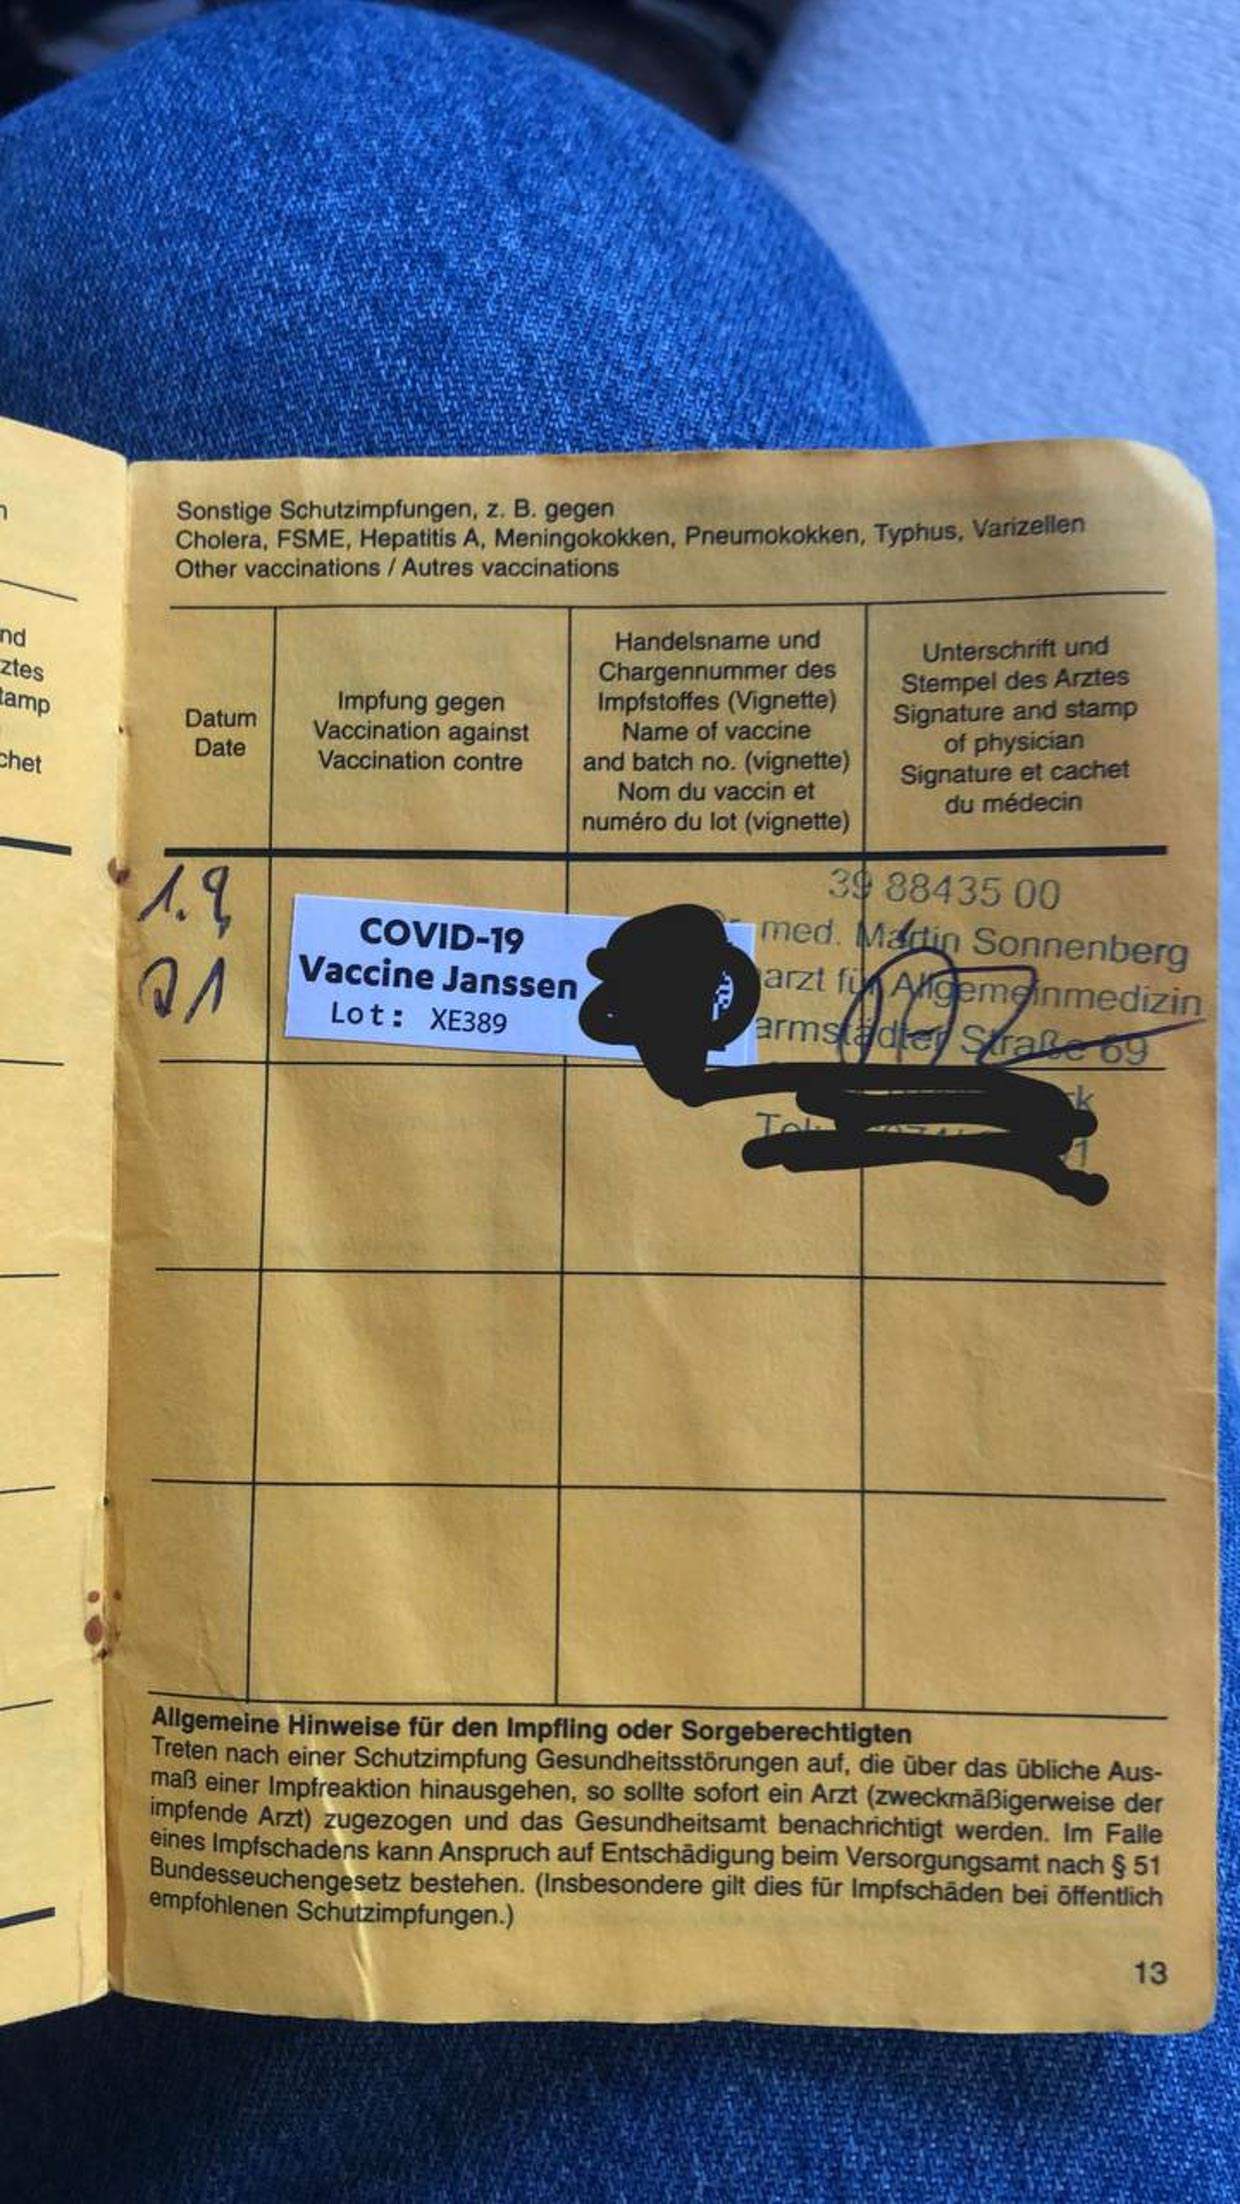 n
nd
ztes
tamp
chet
Sonstige Schutzimpfungen, z. B. gegen
Cholera, FSME, Hepatitis A, Meningokokken, Pneumokokken, Typhus, Varizellen
Other vaccinations / Autres vaccinations
Datum
Date
Impfung gegen
Vaccination against
Vaccination contre
Handelsname und
Chargennummer des
Impfstoffes (Vignette)
Name of vaccine
and batch no. (vignette)
Nom du vaccin et
numéro du lot (vignette)
Unterschrift und
Stempel des Arztes
Signature and stamp
of physician
Signature et cachet
du médecin
1.9
21
COVID-19
Vaccine Janssen
Lot: XE389
39 88435 00
med. Martin Sonnenberg
arzt für Allgemeinmedizin
armstädter Straße 69
k
Tel.
1
Allgemeine Hinweise für den Impfling oder Sorgeberechtigten
Treten nach einer Schutzimpfung Gesundheitsstörungen auf, die über das übliche Aus-
maß einer Impfreaktion hinausgehen, so sollte sofort ein Arzt (zweckmäßigerweise der
impfende Arzt) zugezogen und das Gesundheitsamt benachrichtigt werden. Im Falle
eines Impfschadens kann Anspruch auf Entschädigung beim Versorgungsamt nach § 51
Bundesseuchengesetz bestehen. (Insbesondere gilt dies für Impfschäden bei öffentlich
empfohlenen Schutzimpfungen.)
13